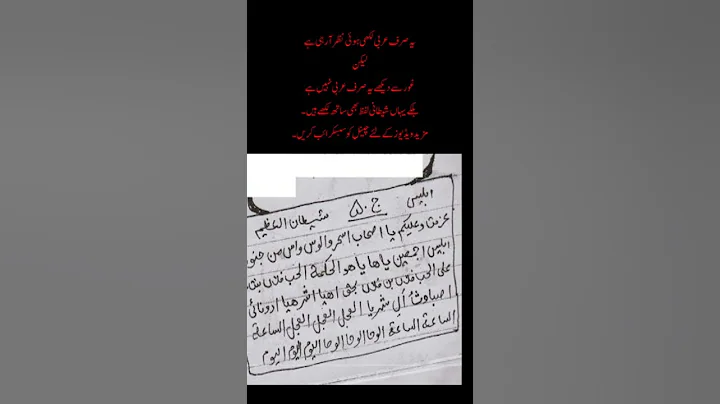 یہ صرف عربی لکھی ہوئی نظر آرہی ہے
لیکن
غور سے دیکھے یہ صرف عربی نہیں ہے
بلکے یہاں شیطانی لفظ بھی ساتھ لکھے ہیں۔
مزید ویڈیوز کے لئے چینل کو سبسکرائب کریں۔
ابلیس ج ۵۰ شیطان العظیم
عزمت وعلیکم یا اصحاب اسحر والوس واس من جنود
ابلیس اجمعین یاھا یاھو الحکمة الحب فلاں بنت
علی الحب فلاں بن فلاں بحق اھیا اشرھیا ادونائی
اصباوث اٰل شریا العجل العجل العجل الساعة
الساعة الساعة الوحا الوحا الوحا الیوم الیوم الیوم